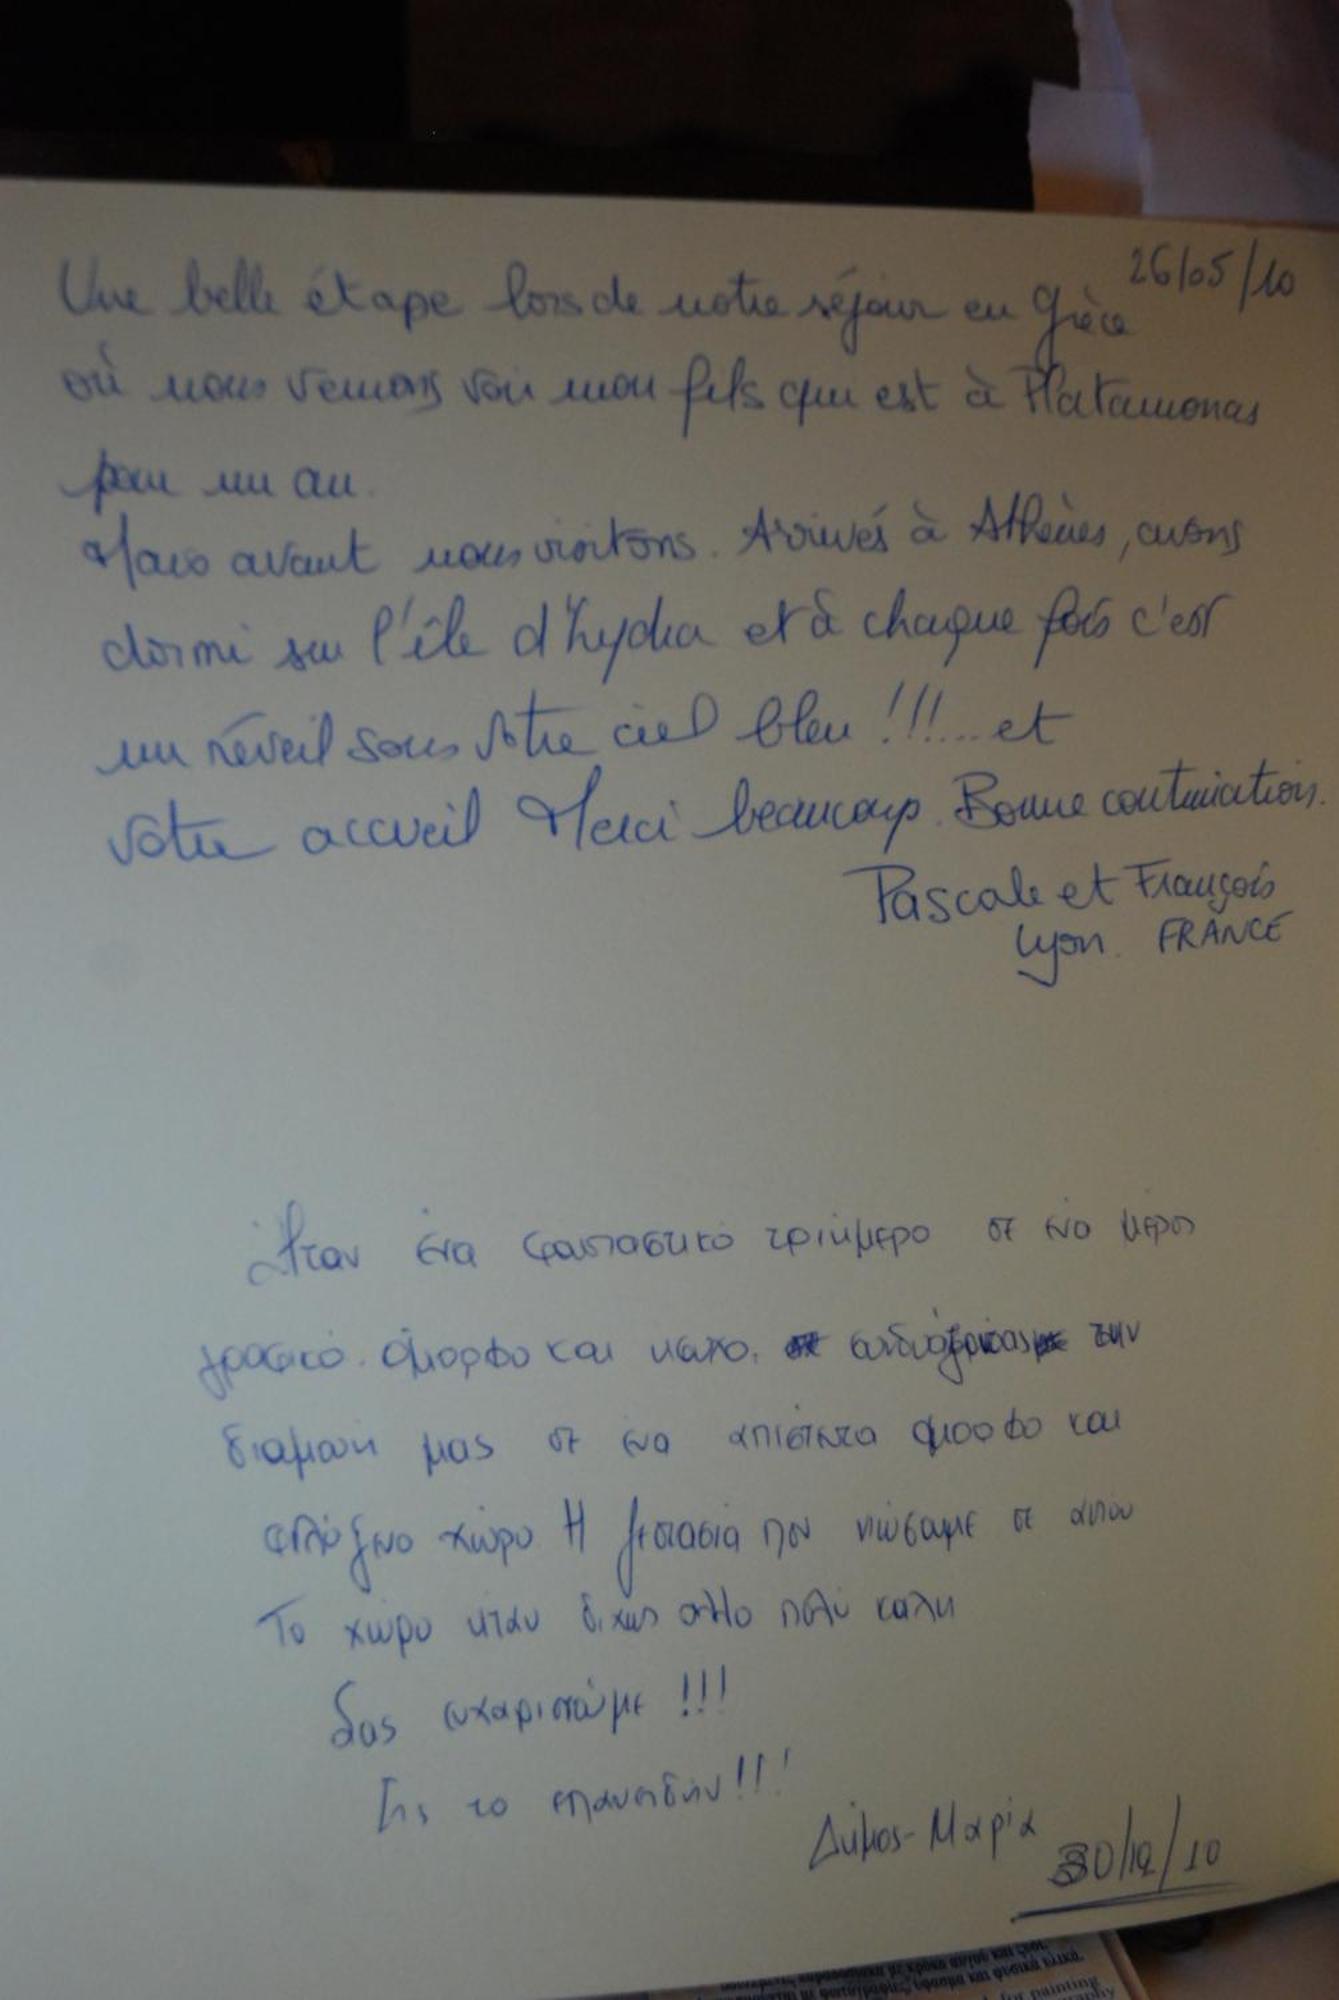 26/05/10
Une belle étape lors de notre séjour en Grèce
où nous venons voir mon fils qui est à Platamonas
pour un an.
Mais avant nous visitons. Arrivés à Athènes, avons
dormi sur l'île d'hydra et à chaque fois c'est
un réveil sous votre ciel bleu !!!... et
votre accueil Merci beaucoup. Bonne continuation.
Pascale et François
Lyon. FRANCE
Ήταν ένα φανταστικό τριήμερο σε ένα μέρος
γραφικό. όμορφο και την
διαμονή μας σε ένα απίστευτα όμορφο και
φιλόξενο χώρο Η ζεστασιά που νιώσαμε σε αυτόν
Το χώρο ήταν δίχως άλλο πολύ καλή
Σας ευχαριστούμε !!!
Εις το επανιδήν!!!
Δήμος-Μαρία
30/12/10
for painting